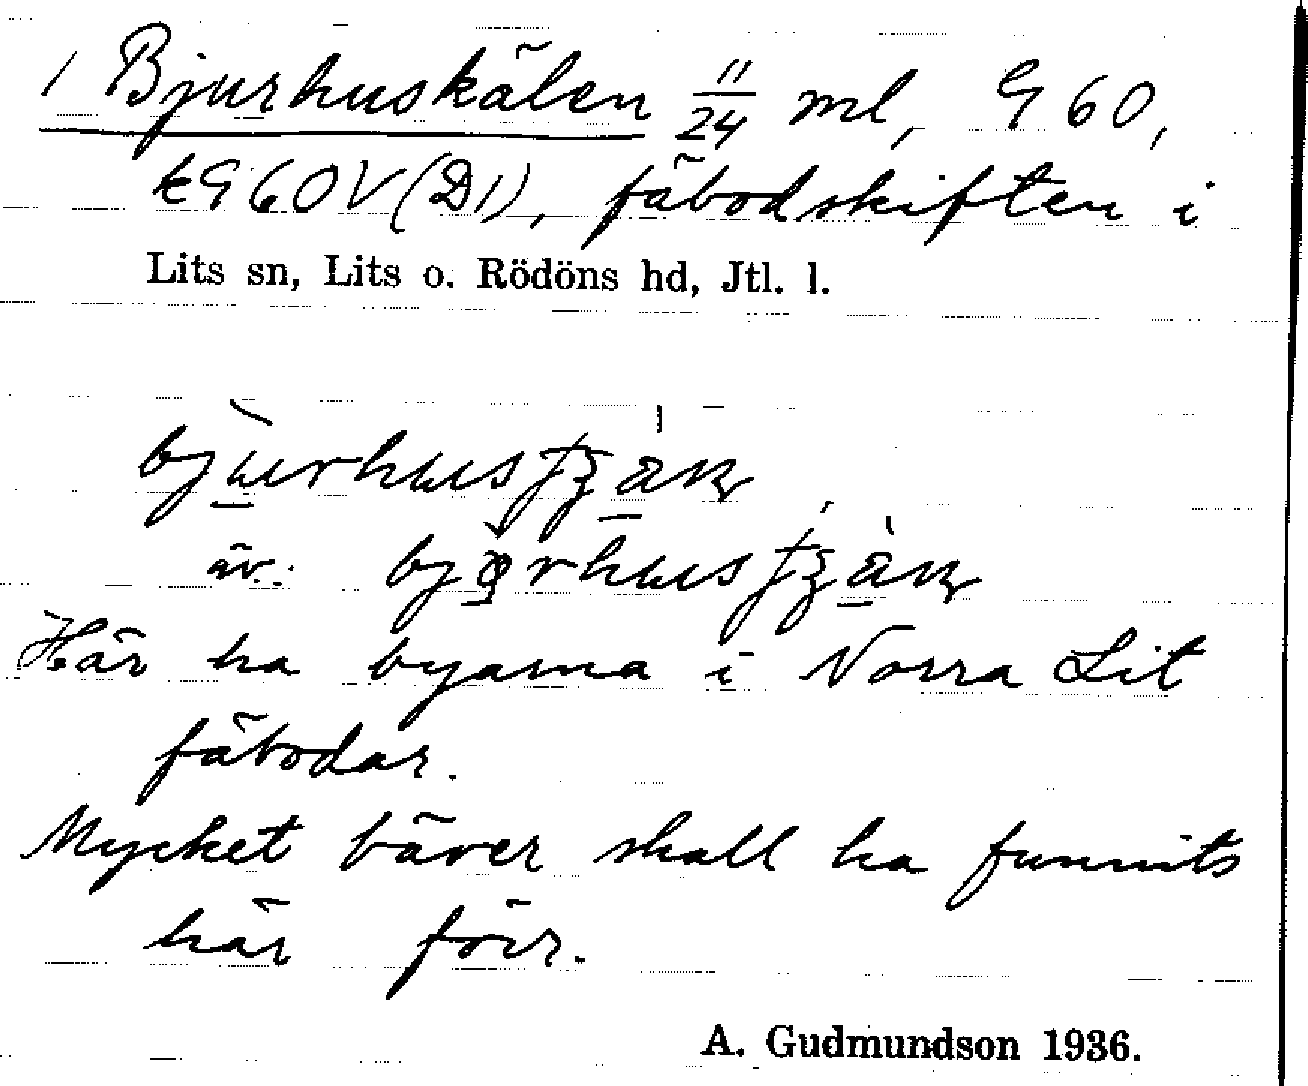 1 Bjurhuskälen 11/24 ml, G 60,
kG60V(D1), fäbodskiften i
Lits sn, Lits o. Rödöns hd, Jtl. l.
äv.
Här ha byarna i Norra Lit
fäbodar.
Mycket bäver skall ha funnits
här förr.
A. Gudmundson 1936.